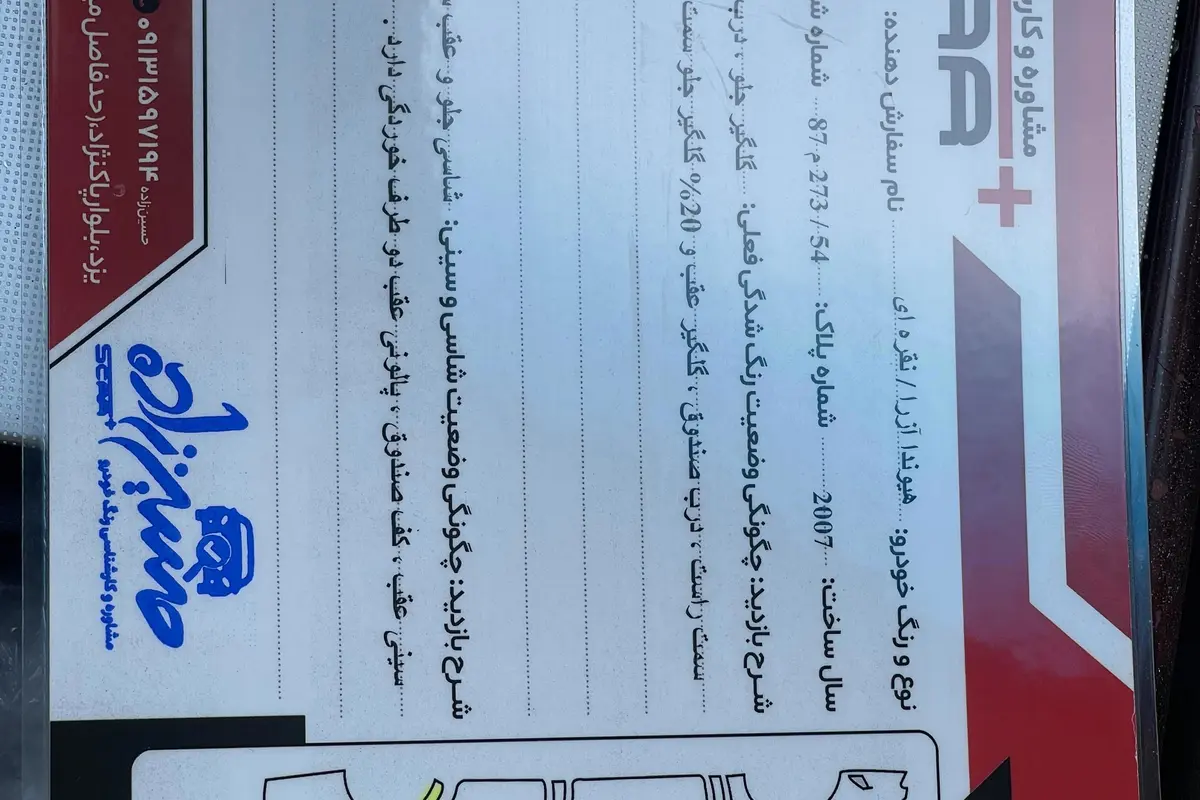 مشاوره و کار
نوع و رنگ خودرو: هیوندا آزرا / نقره ای نام سفارش دهنده:
سال ساخت: 2007 شماره پلاک: 54 / 273 م 87 شماره
شرح بازدید: چگونگی وضعیت رنگ شدگی فعلی: گلگیر جلو ، درب
سمت راست ، درب صندوق ، گلگیر عقب و 20% گلگیر جلو سمت
شرح بازدید: چگونگی وضعیت شاسی و سینی: شاسی جلو و عقب
سینی عقب ، کف صندوق ، پالونی عقب دو طرف خوردگی دارد .
حسین زاده
scan+
مشاوره و کارشناسی رنگ خودرو
۰۹۱۳۱۵۹۷۱۹۴ حسین‌زاده
یزد، بلوار پاکنژاد، (حدفاصل